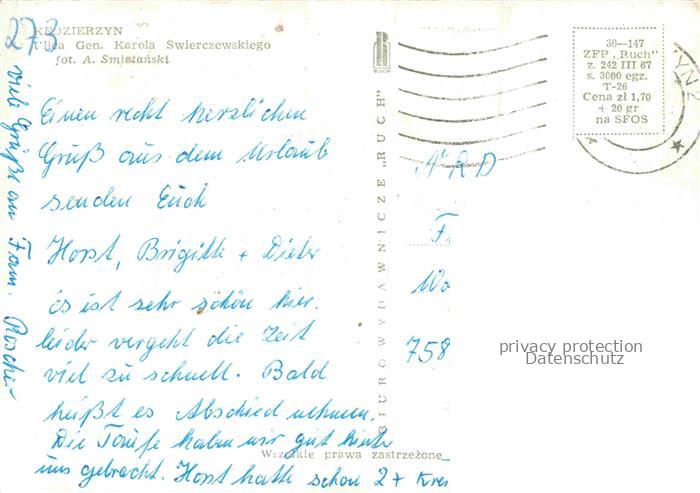 273
KĘDZIERZYN
Ulica Gen. Karola Świerczewskiego
fot. A. Śmietański
Einen recht herzlichen
Gruß aus dem Urlaub
senden Euch
Horst, Brigitte + Dieter
es ist sehr schön hier.
leider vergeht die Zeit
viel zu schnell. Bald
heißt es Abschied nehmen.
Die Taufe haben wir gut hinter
uns gebracht. Horst hatte schon 2 +
viele Grüße an Fam. Roscher
BIURO WYDAWNICZE „RUCH"
RUCH
Wszelkie prawa zastrzeżone
30—147
ZFP „Ruch"
z. 242 III 67
s. 3000 egz.
T-26
Cena zł 1,70
+ 20 gr
na SFOS
YN 2
F.
Wo
758
privacy protection
Datenschutz